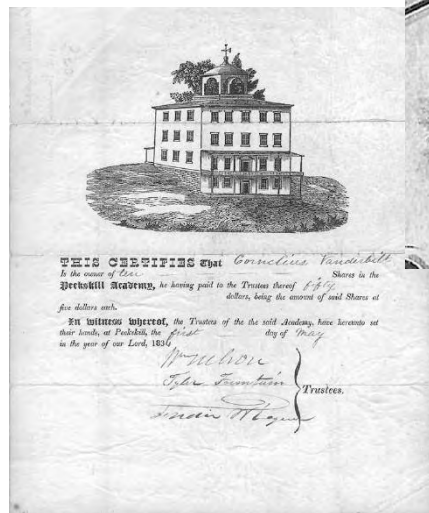 THIS CERTIFIES That Cornelius Vanderbilt
Is the owner of ten Shares in the
Peekskill Academy, he having paid to the Trustees thereof fifty
dollars, being the amount of said Shares at
five dollars each.
In witness whereof, the Trustees of the the said Academy, have hereunto set
their hands, at Peekskill, the first day of May
in the year of our Lord, 1836
Wm Nelson
Tyler Fountain
Trustees.